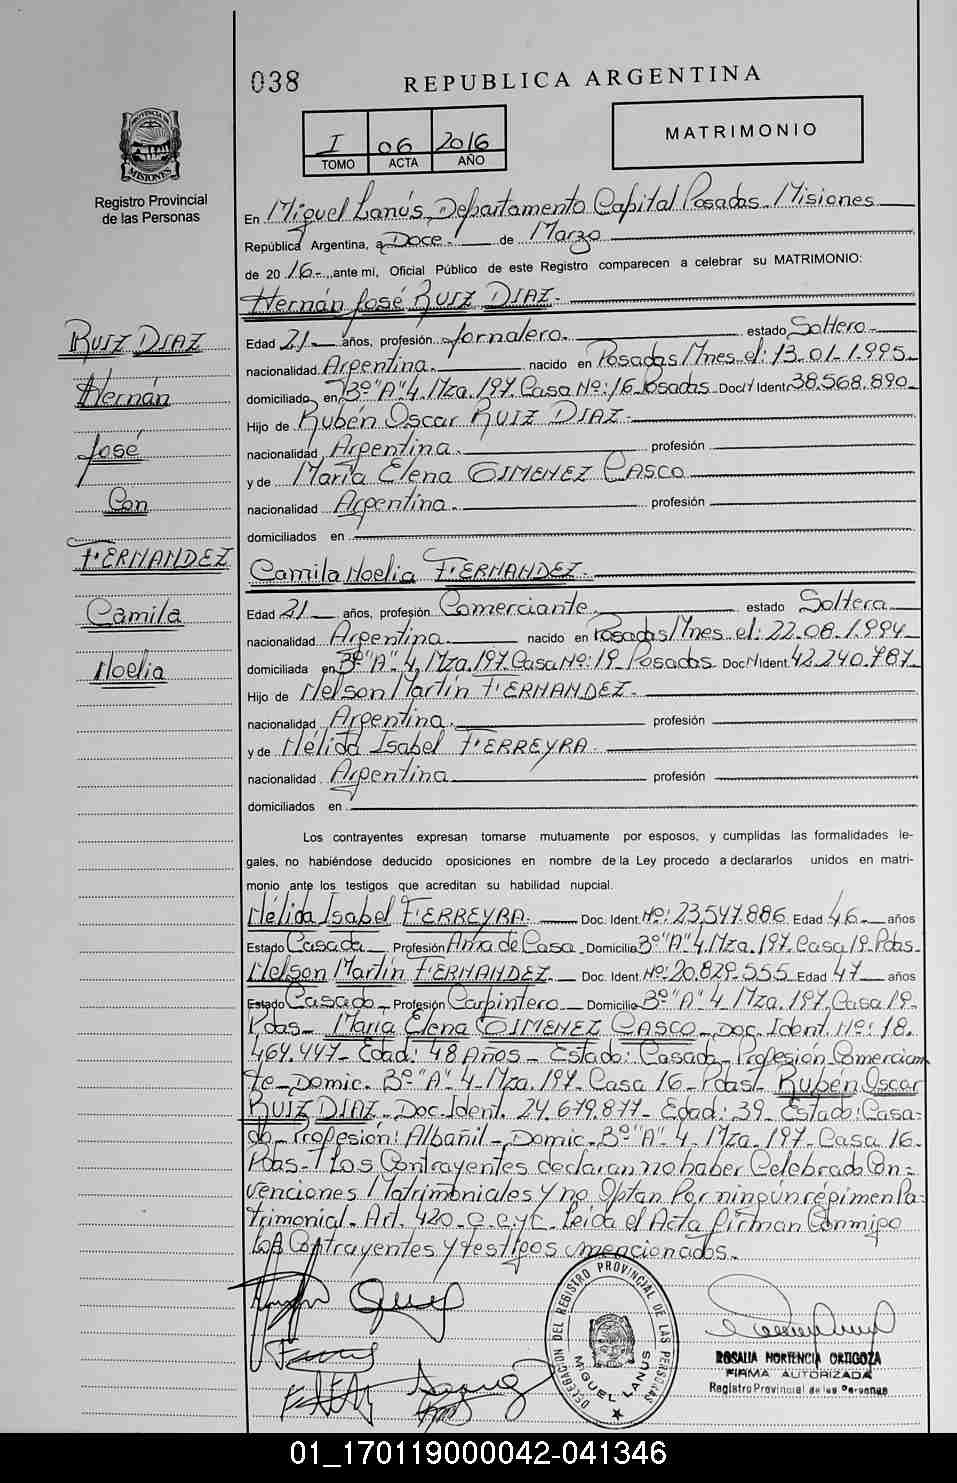 038
REPUBLICA ARGENTINA
PROVINCIA DE
MISIONES
Registro Provincial
de las Personas
I 06 2016
TOMO ACTA AÑO
MATRIMONIO
En Miguel Lanús, Departamento Capital Posadas - Misiones
República Argentina, a Doce de Marzo
de 2016 -, ante mi, Oficial Público de este Registro comparecen a celebrar su MATRIMONIO:
Hernán José RUIZ DIAZ.-
RUIZ DIAZ
Hernán
José
Con
FERNANDEZ
Camila
Noelia
Edad 21 años, profesión Jornalero.- estado Soltero-
nacionalidad Argentina. nacido en Posadas Mnes el: 13-01-1.995-
domiciliado en 3º"A" 4. Mza. 197. Casa Nº: 16. Posadas. Doc/Y Ident 38.568.890-
Hijo de Rubén Oscar RUIZ DIAZ.-
nacionalidad Argentina. profesión
y de María Elena GIMENEZ CASCO
nacionalidad Argentina. profesión
domiciliados en
Camila Noelia FERNANDEZ.-
Edad 21 años, profesión Comerciante. estado Soltera
nacionalidad Argentina. nacido en Posadas Mnes el: 22-08-1.994-
domiciliada en 3º"A". 4. Mza. 197. Casa Nº: 19. Posadas. Doc Y Ident. 42.240.787-
Hijo de Nelson Martín FERNANDEZ.-
nacionalidad Argentina. profesión
y de Nélida Isabel FERREYRA.
nacionalidad Argentina. profesión
domiciliados en
Los contrayentes expresan tomarse mutuamente por esposos, y cumplidas las formalidades le-
gales, no habiéndose deducido oposiciones en nombre de la Ley procedo a declararlos unidos en matri-
monio ante los testigos que acreditan su habilidad nupcial.
Nélida Isabel FERREYRA.- Doc. Ident. Nº: 23.547.886 Edad 46- años
Estado Casada- Profesión Ama de Casa. Domicilia 3º"A" 4. Mza. 197. Casa 19- Pdas-
Nelson Martín FERNANDEZ.- Doc. Ident. Nº: 20.829.555 Edad 47 años
Estado Casado- Profesión Carpintero- Domicilia 3º"A" 4 Mza. 197. Casa 19-
Pdas- María Elena GIMENEZ CASCO- Doc. Ident. Nº: 18.
464.447- Edad: 48 Años- Estado: Casada- Profesión Comercian
te- Domic. 3º"A" 4- Mza. 197. Casa 16- Pdas- Rubén Oscar
RUIZ DIAZ- Doc. Ident. 24.679.877- Edad: 39- Estado: Casa-
do- Profesión: Albañil- Domic. 3º"A" 4. Mza. 197- Casa 16-
Pdas- Los Contrayentes declaran no haber Celebrado Con-
venciones Matrimoniales y no Optan Por ningún régimen Pa-
trimonial- Art. 420- C.C.yC. Leída el Acta firman Conmigo
Los Contrayentes y testigos mencionados.-
DELEGACION DEL REGISTRO PROVINCIAL DE LAS PERSONAS
MIGUEL LANUS
ROSALIA HORTENCIA ORTIGOZA
FIRMA AUTORIZADA
Registro Provincial de las Personas
01_170119000042-041346